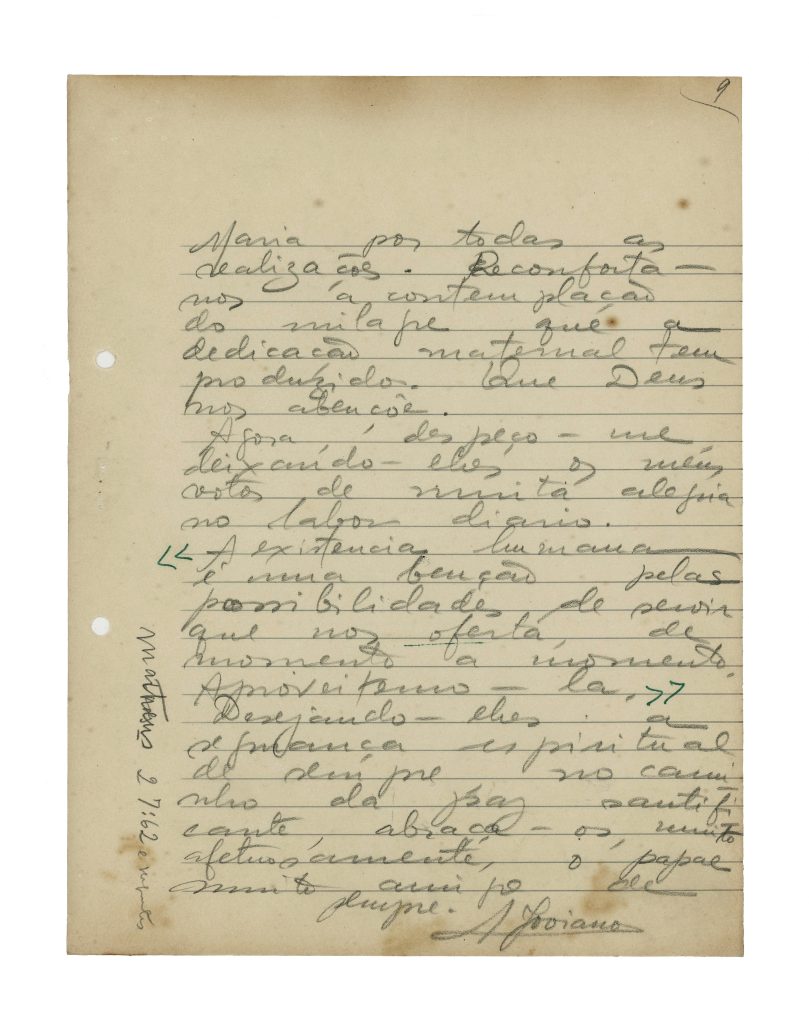 9
Maria por todas as
realizações. Reconforta-
nos a contemplação
do milagre que a
dedicação maternal tem
produzido. Que Deus
nos abençõe.
Agora, despeço-me
deixando-lhes os meus
votos de muita alegria
no labor diario.
<< A existencia humana
é uma benção pelas
possibilidades de servir
que nos oferta, de
momento a momento.
Aproveitemo-la. >>
Desejando-lhes a
segurança espiritual
de sempre no cami
nho da paz santifi
cante, abraça-os, muito
afetuosamente, o papae
muito amigo de
sempre.
A Joviano
Matheus 27:62 e